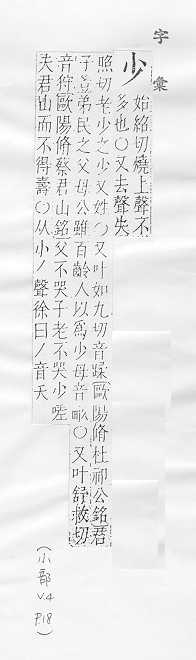 字彙
少
始紹切燒上聲不
多也〇又去聲失
照切老少之少又姓〇又叶如九切音蹂歐陽脩杜祁公銘君
子豈弟民之父母公雖百齡人以爲少母音畞〇又叶舒救切
音狩歐陽脩蔡君山銘父不哭子老不哭少嗟
夫君山而不得壽〇从小丿聲徐曰丿音夭
(小部
v.4
p.18)